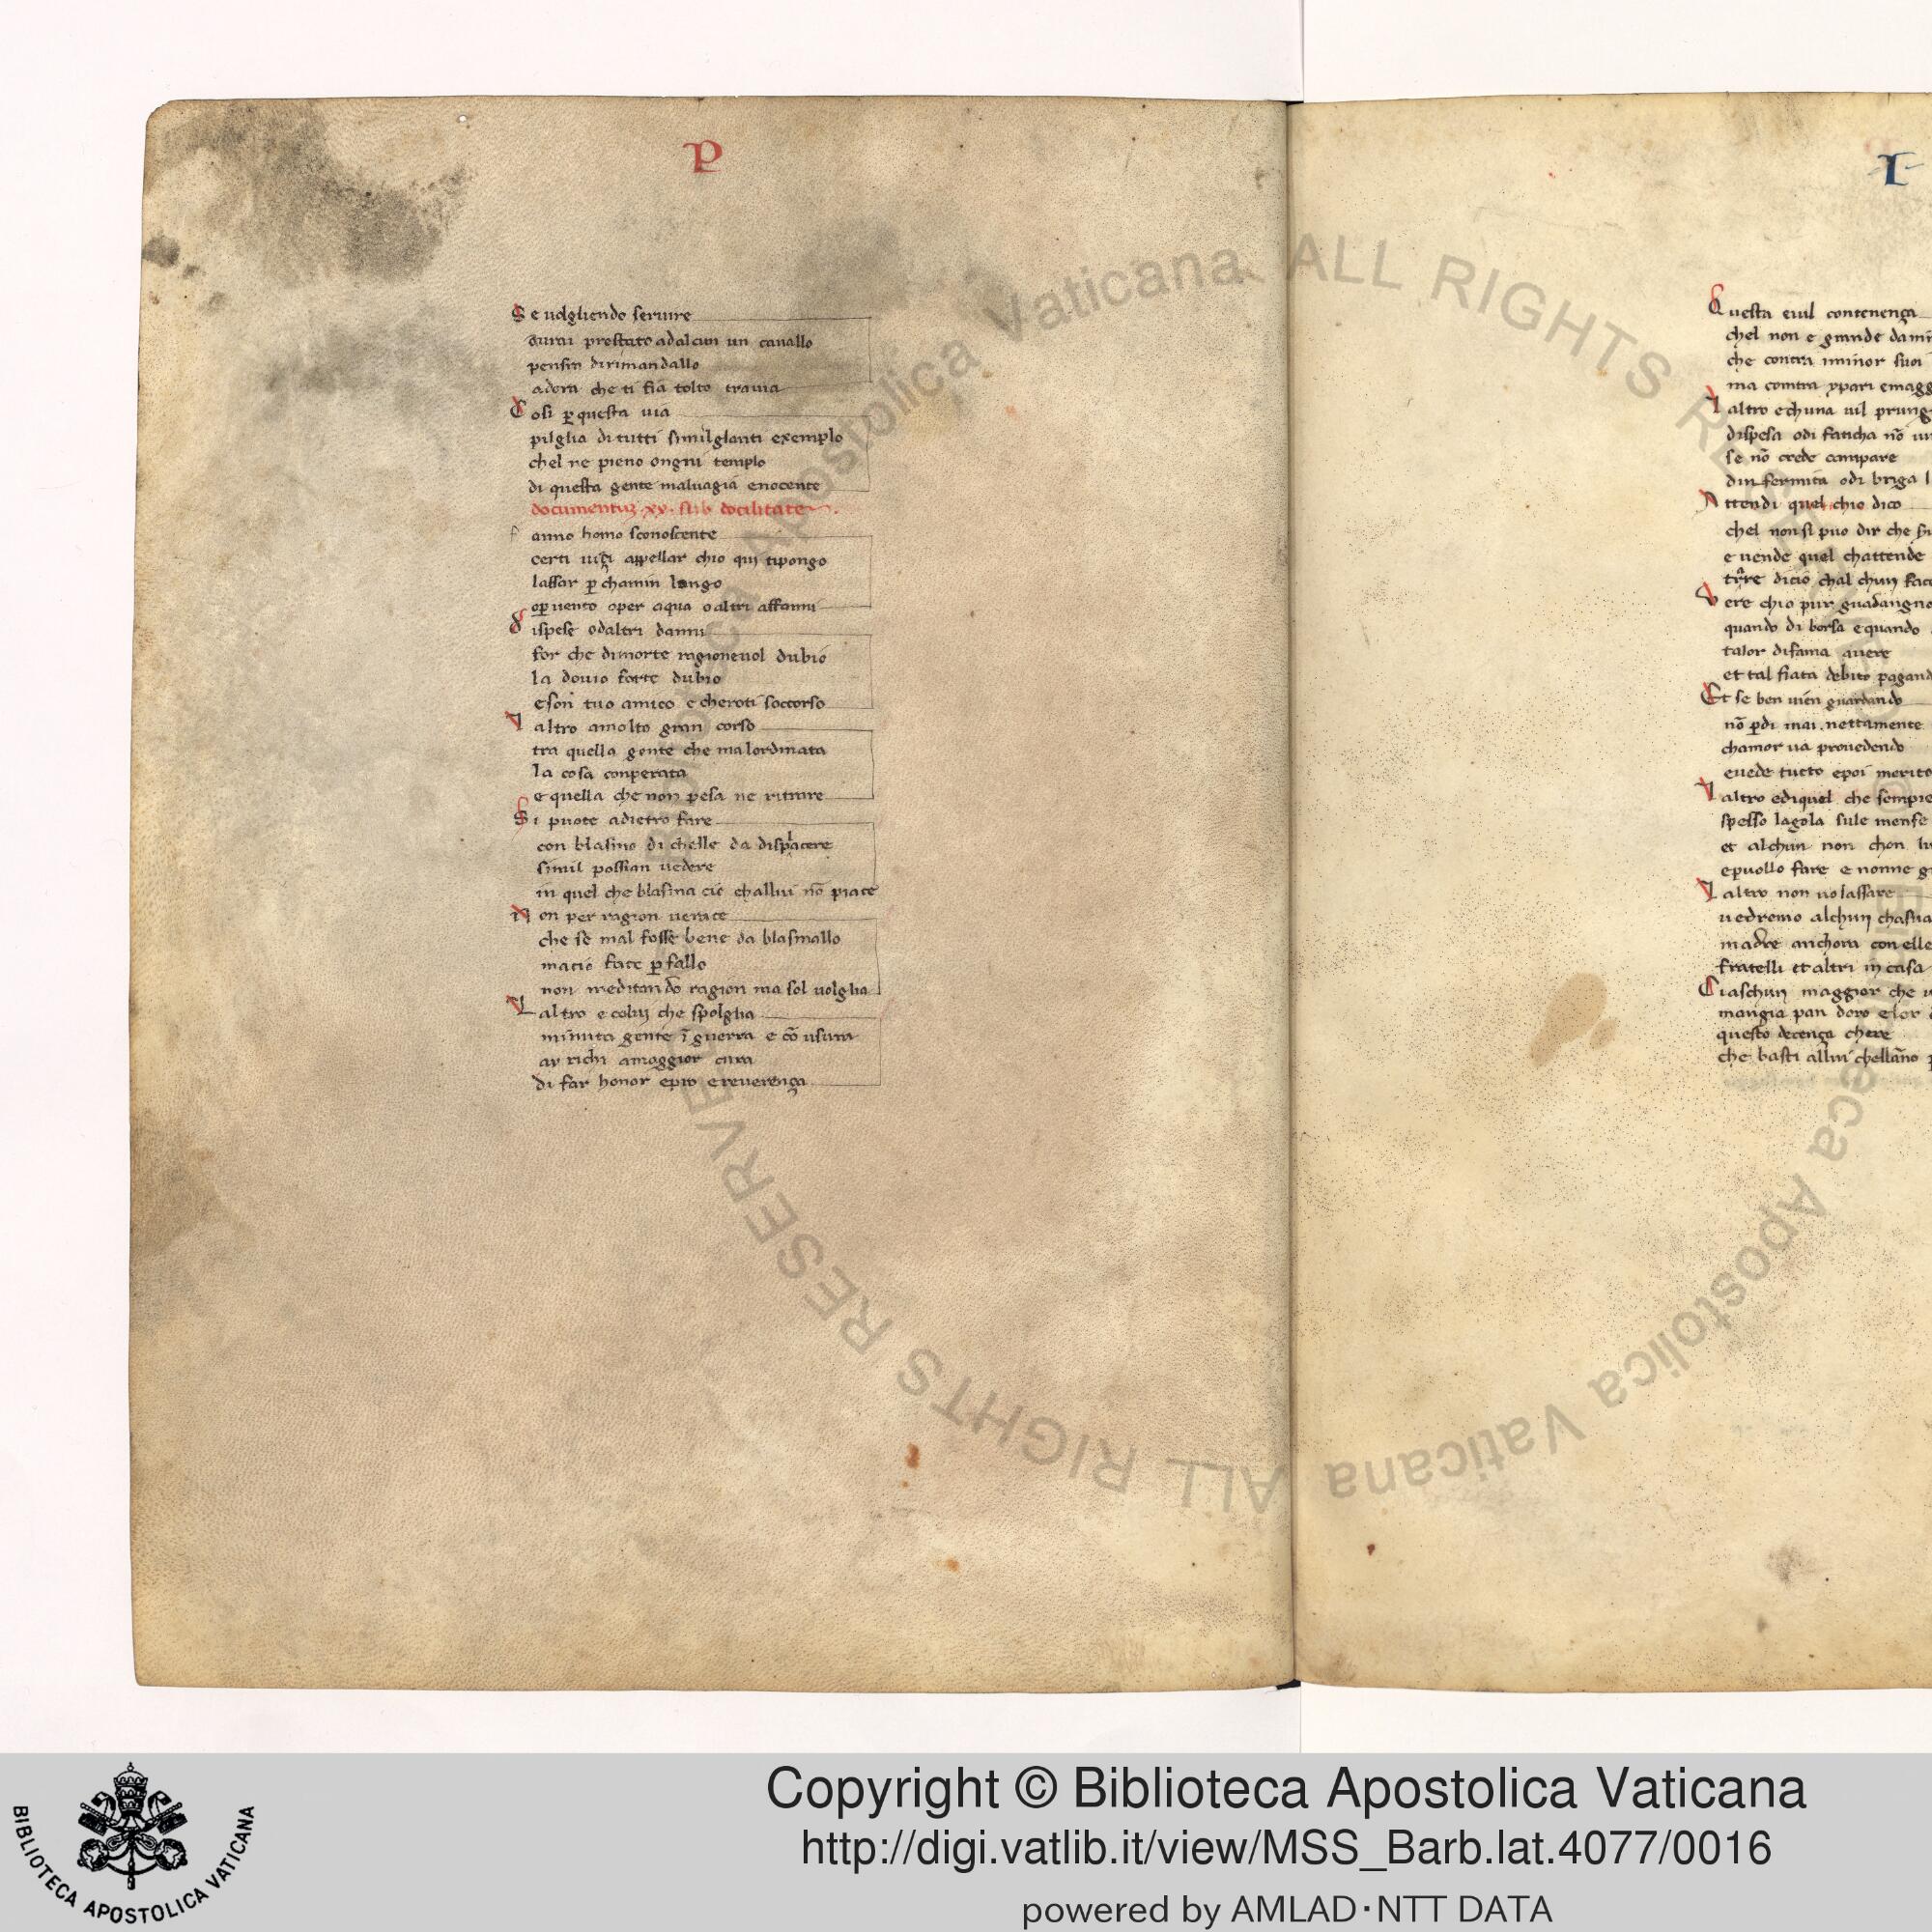 P
Se uolgliendo seruire
aurai prestato adalcun un cauallo
pensin dirimandallo
adora che ti fia tolto trauia
Cosi ꝑ questa uia
pilglia di tutti similglanti exemplo
chel ne pieno ongni templo
di questa gente maluagia enocente
documentuȝ .xx. sub docilitate
fanno homo sconoscente
certi uiçi appellar chio qui tipongo
lassar ꝑ chamin longo
oꝑ uento oper aqua o altri affanni
dispese odaltri danni
for che dimorte ragioneuol dubio
la douio forte dubio
eson tuo amico e cheroti soccorso
Laltro amolto gran corso
tra quella gente che malordinata
la cosa conperata
e quella che non pesa ne ritrare
Si puote adietro fare
con blasmo di chelle da displacere
simil possian uedere
in quel che blasma cio challui nō piace
Non per ragion uerace
che se mal fosse bene da blasmallo
macio face ꝑ fallo
non meditando ragion ma sol uolglia
Laltro e coluj che spolglia
minuta gente ī guerra e cō usura
ar richi amaggior cura
di far honor epro e reuerença
I
Questa euil contenença
chel non e grande
che contra minor suoi
ma comtra
Laltro echuna uil
dispesa odi faticha nō
se nō crede campare
dinfermita odi briga
Attendi quel chio dico
chel non si puo dir che
e uende quel chattende
dicio chal chun
Vere chio pur
quando di borsa e quando
talor difama auere
et tal fiata debito
Et se ben uien guardando
nō ꝑdi mai nettamente
chamor ua prouedendo
euede tucto epoi
Laltro ediquel che
spesso lagola sule mense
et alchun non chon
epuollo fare e nonne
Laltro non uo lassare
uedremo alchun
madre anchora con
fratelli et altri in casa
Ciaschun maggior che
mangia pan doro
questo decença chere
che basti allui
Copyright © Biblioteca Apostolica Vaticana
http://digi.vatlib.it/view/MSS_Barb.lat.4077/0016
powered by AMLAD·NTT DATA
BIBLIOTECA APOSTOLICA VATICANA